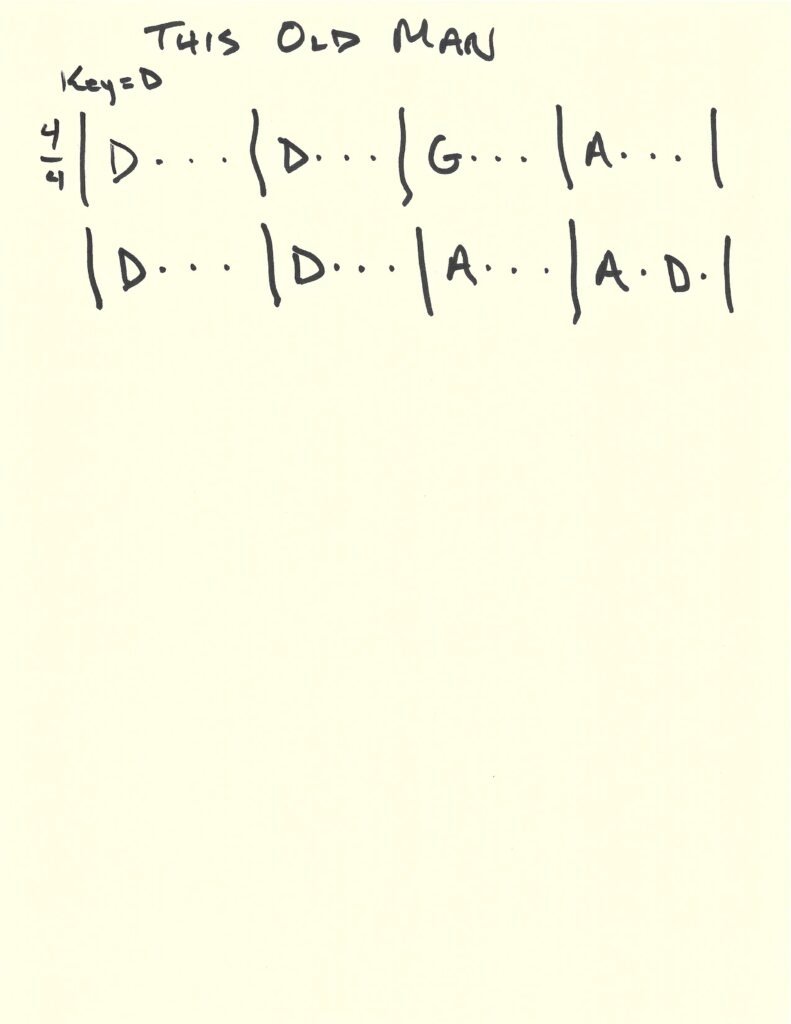 THIS OLD MAN
Key=D
4/4 | D . . . | D . . . | G . . . | A . . . |
| D . . . | D . . . | A . . . | A . D . |